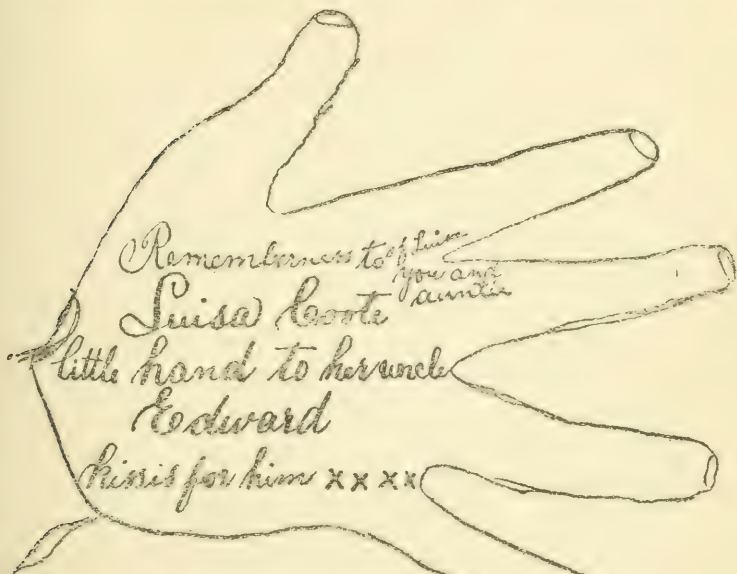 Rememberness to you and
auntie
Luisa Coote
little hand to her uncle
Edward
kissis for him x x x x